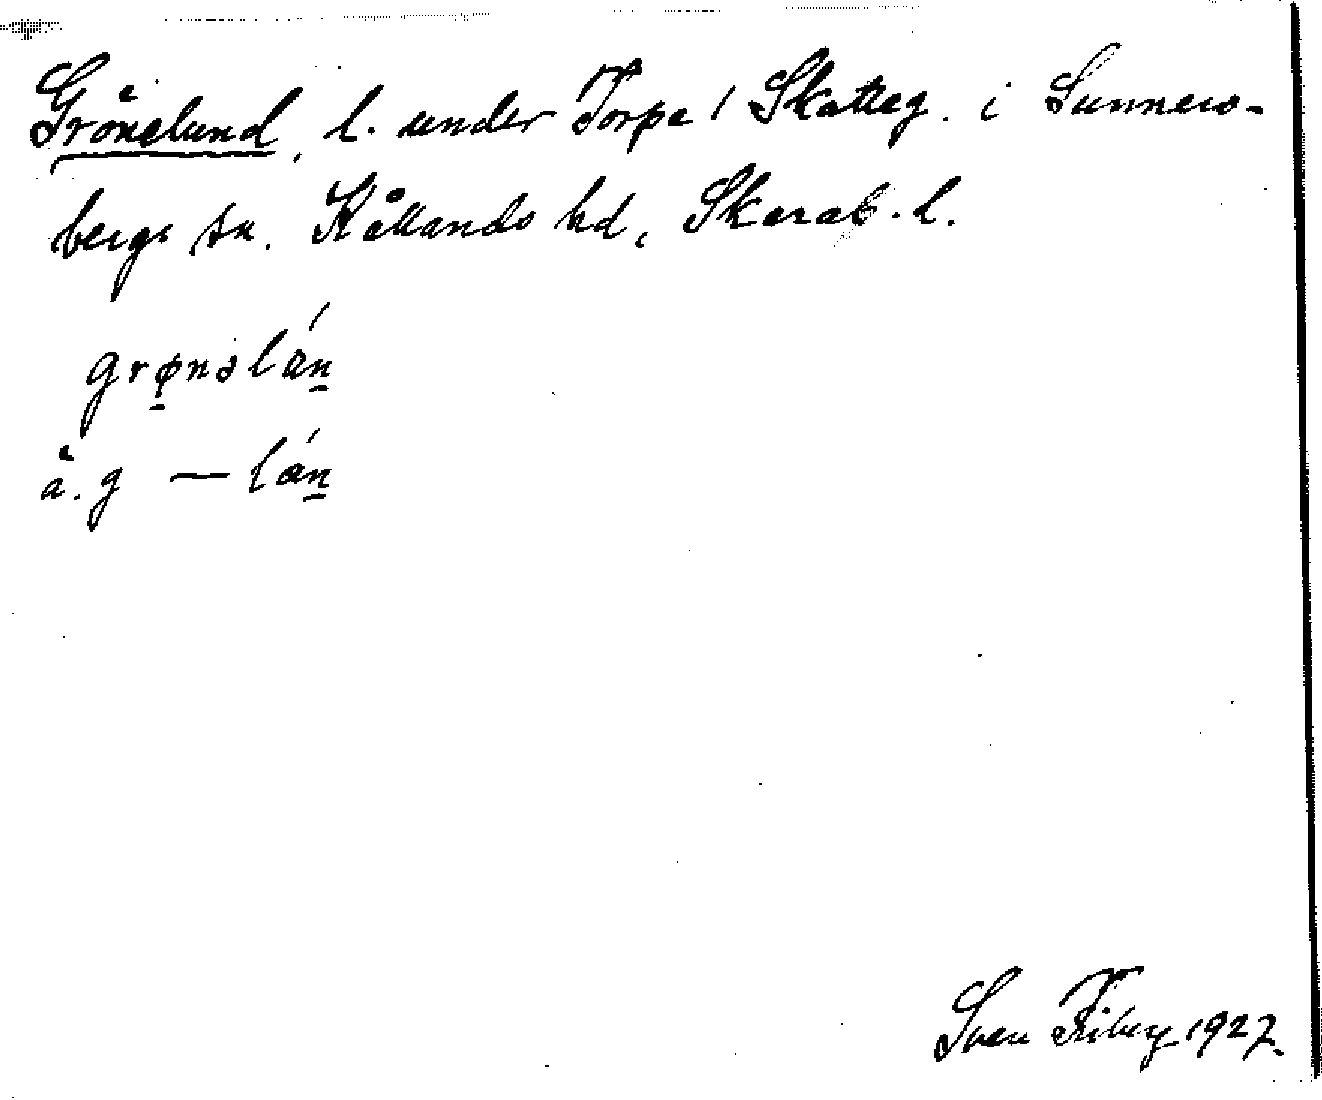 Grönelund, l. under Torpe 1 Skatteg. i Sunners-
bergs sn. Kållands hd, Skarab. l.
grønəlán
ä. g — lán
Sven Fiby 1927.